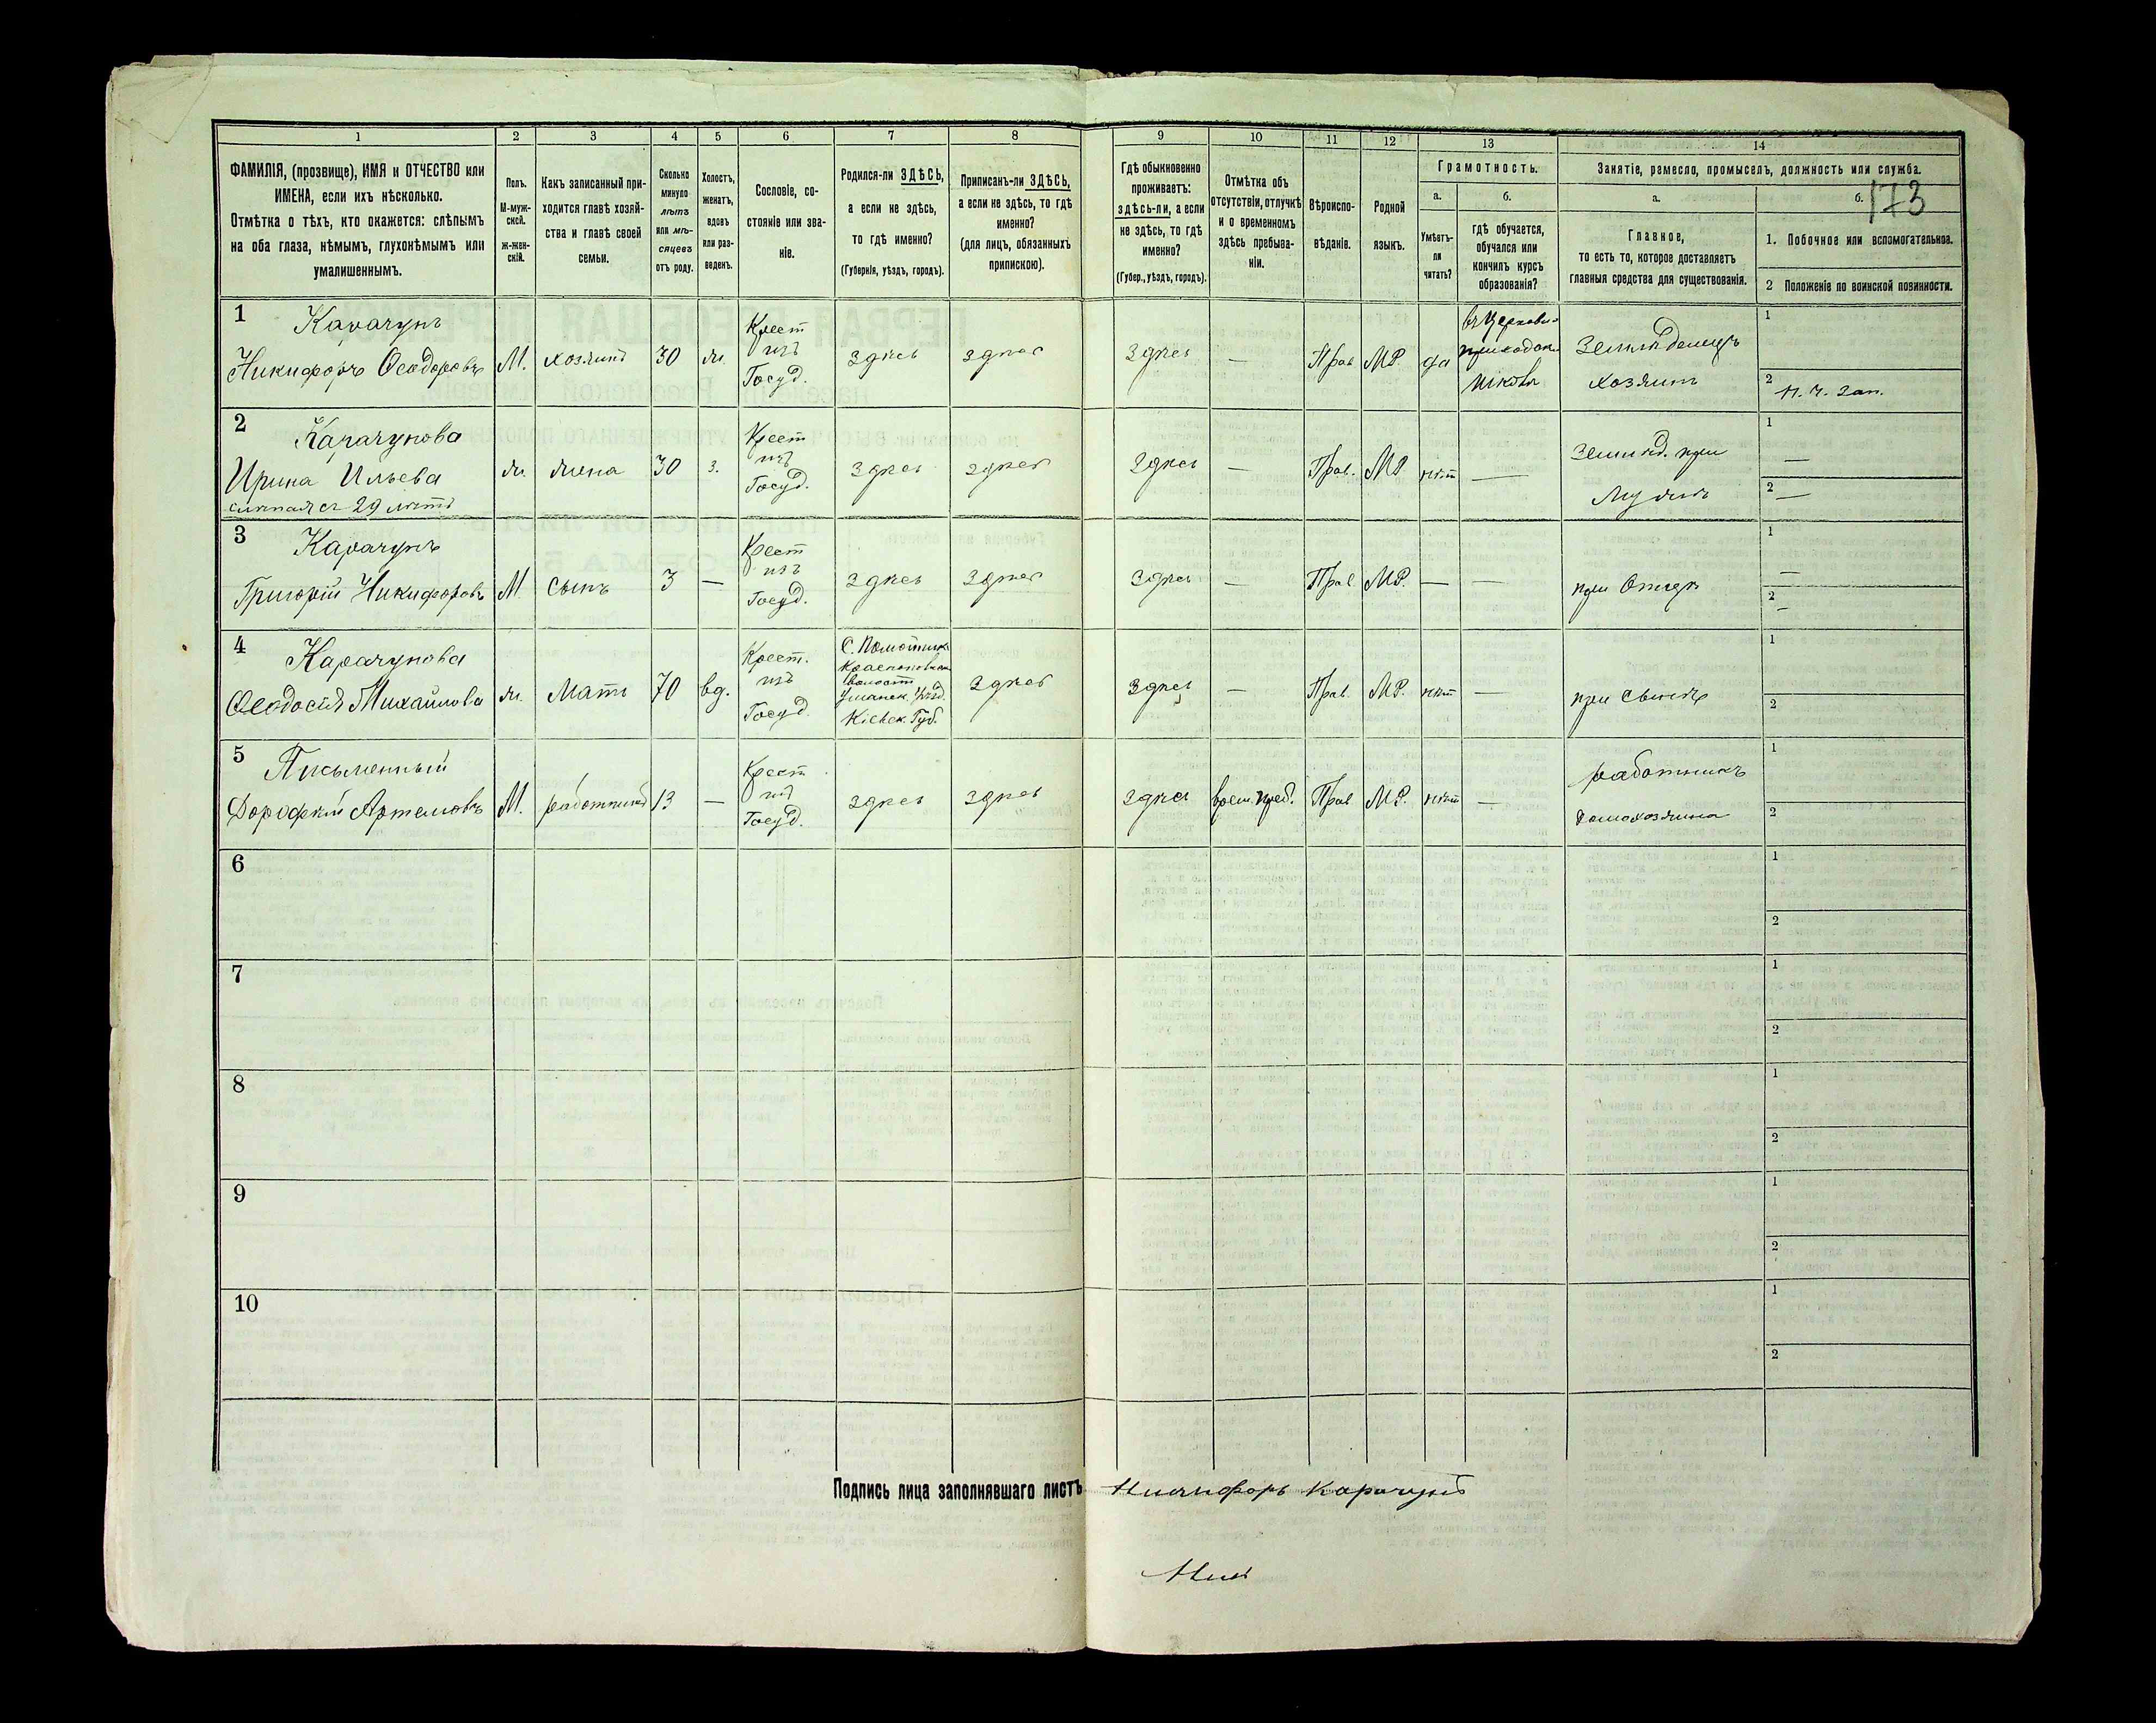 1 2 3 4 5 6 7 8 9 10 11 12 13 14
ФАМИЛІЯ, (прозвище), ИМЯ и ОТЧЕСТВО или
ИМЕНА, если ихъ нѣсколько.
Отмѣтка о тѣхъ, кто окажется: слѣпымъ
на оба глаза, нѣмымъ, глухонѣмымъ или
умалишеннымъ.
Полъ.
М-муж-
ской.
ж-жен-
скій.
Какъ записанный при-
ходится главѣ хозяй-
ства и главѣ своей
семьи.
Сколько
минуло
лѣтъ
или мѣ-
сяцевъ
отъ роду.
Холостъ,
женатъ,
вдовъ
или раз-
веденъ.
Сословіе, со-
стояніе или зва-
ніе.
Родился-ли ЗДѢСЬ,
а если не здѣсь,
то гдѣ именно?
(Губернія, уѣздъ, городъ).
Приписанъ-ли ЗДѢСЬ,
а если не здѣсь, то гдѣ
именно?
(для лицъ, обязанныхъ
припискою).
Гдѣ обыкновенно
проживаетъ:
здѣсь-ли, а если
не здѣсь, то гдѣ
именно?
(Губер., уѣздъ, городъ).
Отмѣтка объ
отсутствіи, отлучкѣ
и о временномъ
здѣсь пребыва-
ніи.
Вѣроиспо-
вѣданіе.
Родной
языкъ.
Грамотность.
а.
Умѣетъ-
ли
читать?
б.
гдѣ обучается,
обучался или
кончилъ курсъ
образованія?
Занятіе, ремесло, промыселъ, должность или служба.
а.
Главное,
то есть то, которое доставляетъ
главныя средства для существованія.
б.
173
1. Побочное или вспомогательное.
2 Положеніе по воинской повинности.
1
Карачунъ
Никифоръ Ѳеодоровъ
М.
хозяинъ
30
ж.
Крест
изъ
Госуд.
здѣсь
здѣсь
здѣсь
—
Прав
МР.
да
въ церковно
приходск.
школѣ
Земледѣлецъ
хозяинъ
1
2 н. ч. зап.
2
Карачунова
Ирина Ильева
слѣпая съ 29 лѣтъ
ж.
жена
30
з.
Крест
изъ
Госуд.
здѣсь
здѣсь
здѣсь
—
Прав.
МР.
нѣт
—
Землед. при
Мужѣ
1 —
2 —
3
Карачунъ
Григорій Никифоровъ
М.
сынъ
3
—
Крест
изъ
Госуд.
здѣсь
здѣсь
здѣсь
—
Прав.
МР.
—
—
при Отцѣ
1 —
2 —
4
Карачунова
Ѳеодосія Михайлова
ж.
Мать
70
вд.
Крест.
изъ
Госуд.
волост
Уманск. Уѣзд.
Кіевск. Губ.
здѣсь
здѣсь
—
Прав.
МР.
нѣт
—
при Сынѣ
1
2
5
Письменный
Дорофей Артемовъ
М.
работникъ
13
—
Крест
изъ
Госуд.
здѣсь
здѣсь
здѣсь
врем. преб.
Прав
МР.
нѣт
—
работникъ
домохозяина
1
2
6
1
2
7
1
2
8
1
2
9
1
2
10
1
2
Подпись лица заполнявшаго листъ Никифоръ Карачунъ
Ник